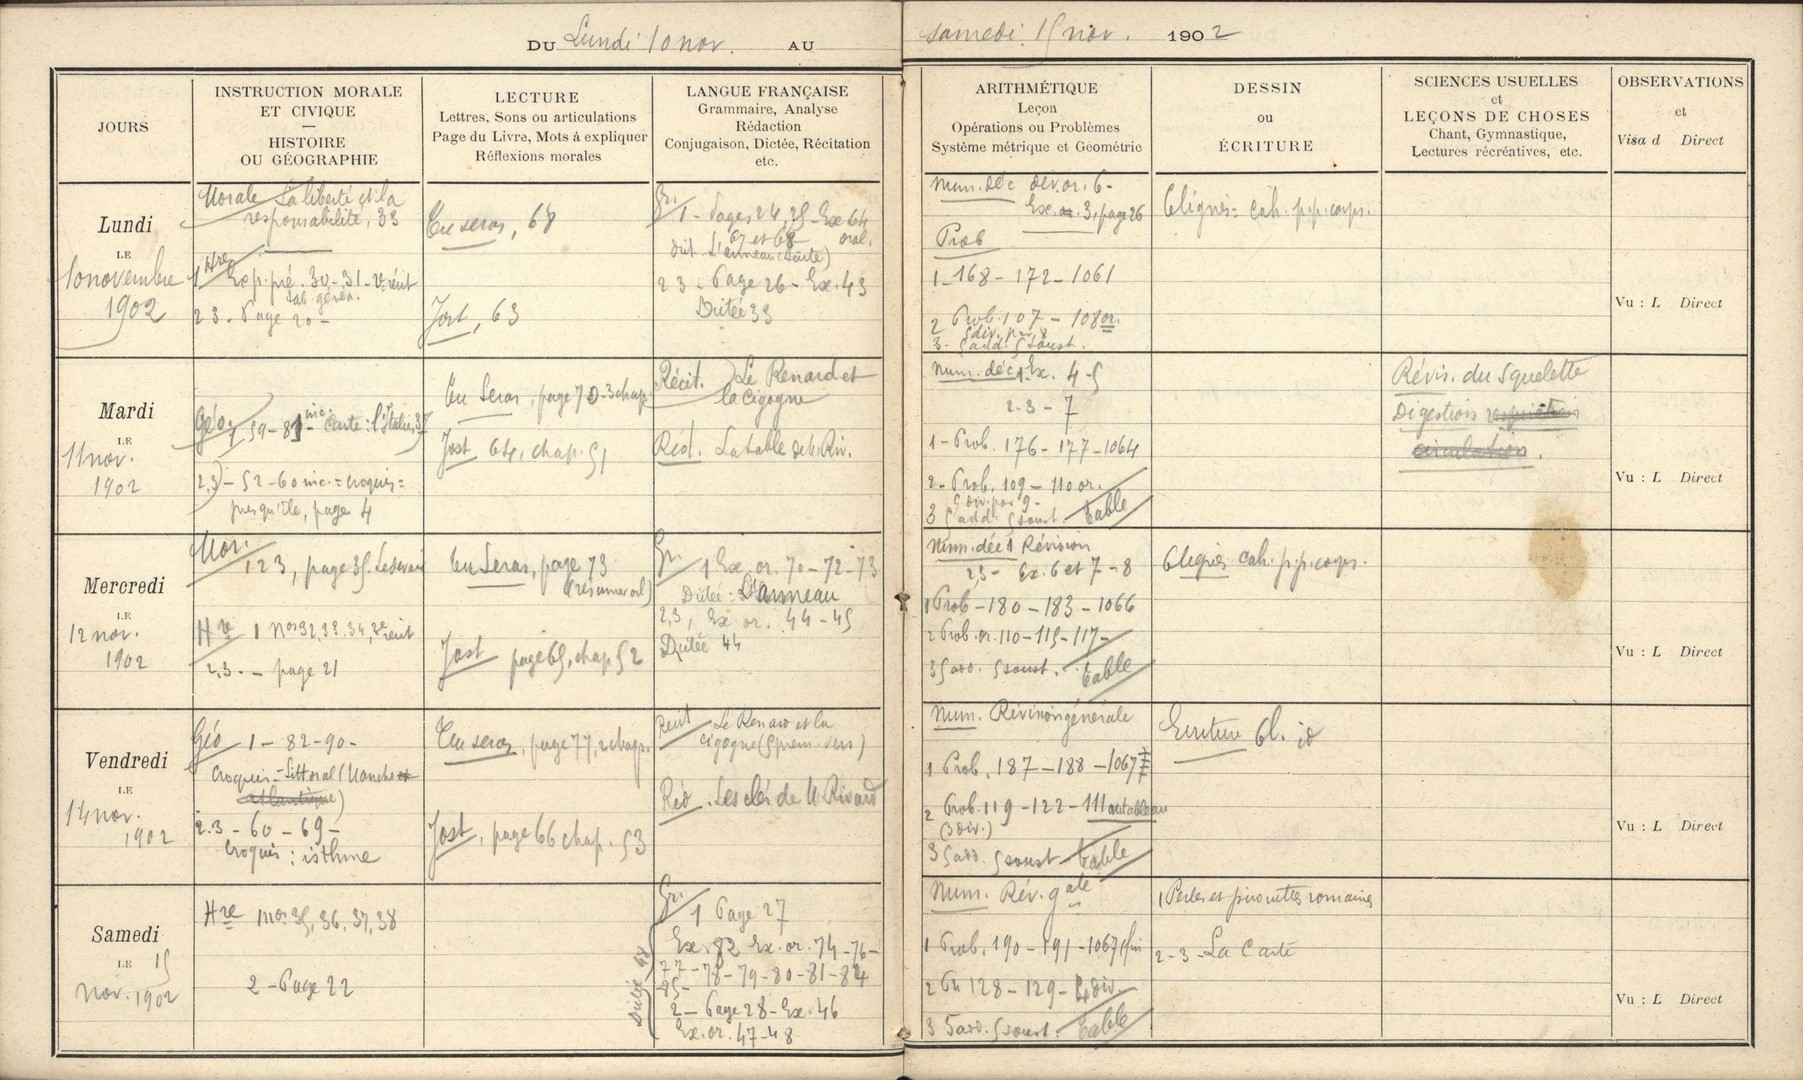 DU Lundi 10 nov. AU samedi 15 nov. 1902
JOURS
INSTRUCTION MORALE
ET CIVIQUE
—
HISTOIRE
OU GÉOGRAPHIE
LECTURE
Lettres, Sons ou articulations
Page du Livre, Mots à expliquer
Réflexions morales
LANGUE FRANÇAISE
Grammaire, Analyse
Rédaction
Conjugaison, Dictée, Récitation
etc.
ARITHMÉTIQUE
Leçon
Opérations ou Problèmes
Système métrique et Géométrie
DESSIN
ou
ÉCRITURE
SCIENCES USUELLES
et
LEÇONS DE CHOSES
Chant, Gymnastique,
Lectures récréatives, etc.
OBSERVATIONS
et
Visa d Direct
Lundi
LE
10 novembre
1902
Morale La liberté et la
responsabilité, 33
1 Hre
Exp. pré. 30-31-
2 3 - Page 20 -
Tu seras, 68
Jost, 63
Gr. 1 - Pages 24, 25 - Ex 64
67 et 68 oral.
Dict. L'anneau (suite)
2 3 - Page 26 - Ex. 43
Dictée 33
Num. déc dev. or. 6 -
Ex. or. 3, page 26
Prob
1 - 168 - 172 - 1061
2 Prob. 107 - 108 or.
5 div. par 8
3 - 5 add. 5 soust.
Obliques cah. p.p. corps.
Vu : L Direct
Mardi
LE
11 nov.
1902
Géo. 1 59 - 81 - Carte : l'Italie, 37
2,3) - 52 - 60 inc. = croquis =
presqu'île, page 4
Tu Seras, page 70 - 3 chap
Jost 64, chap. 51
Récit. Le Renard et
la cigogne
Réd. La table de
Num. déc 1 Ex. 4 - 5
2 - 3 - 7
1 - Prob. 176 - 177 - 1064
2 - Prob. 109 - 110 or.
5 div. par 9 -
3 5 add. 5 soust. - table
Révis. du Squelette
Digestion respiration
circulation.
Vu : L Direct
Mercredi
LE
12 nov.
1902
Mor.
1 2 3, page 35. Le devoir
Hre 1 Nos 32, 33. 34,
2,3. - page 21
Tu Seras, page 73
(résumer orl)
Jost page 65, chap 52
Gr. 1 Ex. or. 70 - 72 - 73
Dictée - L'anneau
2,3, Ex or. 44 - 45
Dictée 44
Num. déc 1 Révision
2,3 - Ex. 6 et 7 - 8
1 Prob - 180 - 183 - 1066
2 Prob. or. 110 - 115 - 117 -
3 5 add. 5 soust. - table
Obliques cah. p.p. corps.
Vu : L Direct
Vendredi
LE
14 nov.
1902
Géo 1 - 82 - 90 -
Croquis - Littoral (Manche et
atlantique)
2.3 - 60 - 69 -
Croquis : isthme
Tu seras, page 77, 2 chap.
Jost, page 66 chap. 53
Récit Le Renard et la
cigogne (5 prem. vers)
Réd. Les clés de M. Rivard
Num. Révision générale
1 Prob. 187 - 188 - 1067
2 Prob. 119 - 122 - 111 au tableau
(3 div.)
3 5 add. 5 soust - table
Ecriture Obl. id
Vu : L Direct
Samedi
LE 15
nov. 1902
Hre nos 35, 36, 37, 38
2 - Page 22
Gr. 1 Page 27
Ex. 82 Ex. or. 74 - 76 -
77 - 78 - 79 - 80 - 81 - 84
- 85 -
2 - Page 28 - Ex. 46
Ex. or. 47 - 48
Dictée 48
Num. Rév. gale
1 Prob. 190 - 191 - 1067 fin
2 Pr 128 - 129 - 4 div. -
3 5 add. 5 soust. - table
1 Perles et pirouettes romaines
2 - 3 - La Carte
Vu : L Direct